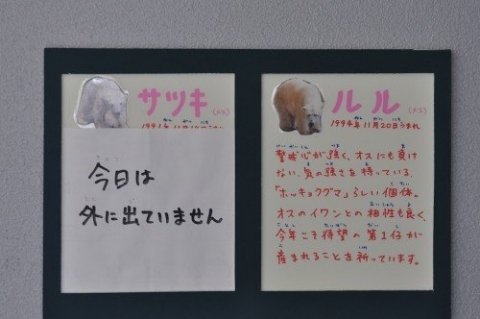 サツキ (メス)
今日は
外に出ていません
ルル (メス)
1994年11月20日うまれ
警戒心が強く、オスにも負け
ない気の強さを持っている、
「ホッキョクグマ」らしい個体。
オスのイワンとの相性も良く、
今年こそ待望の第1仔が
産まれることを祈っています。